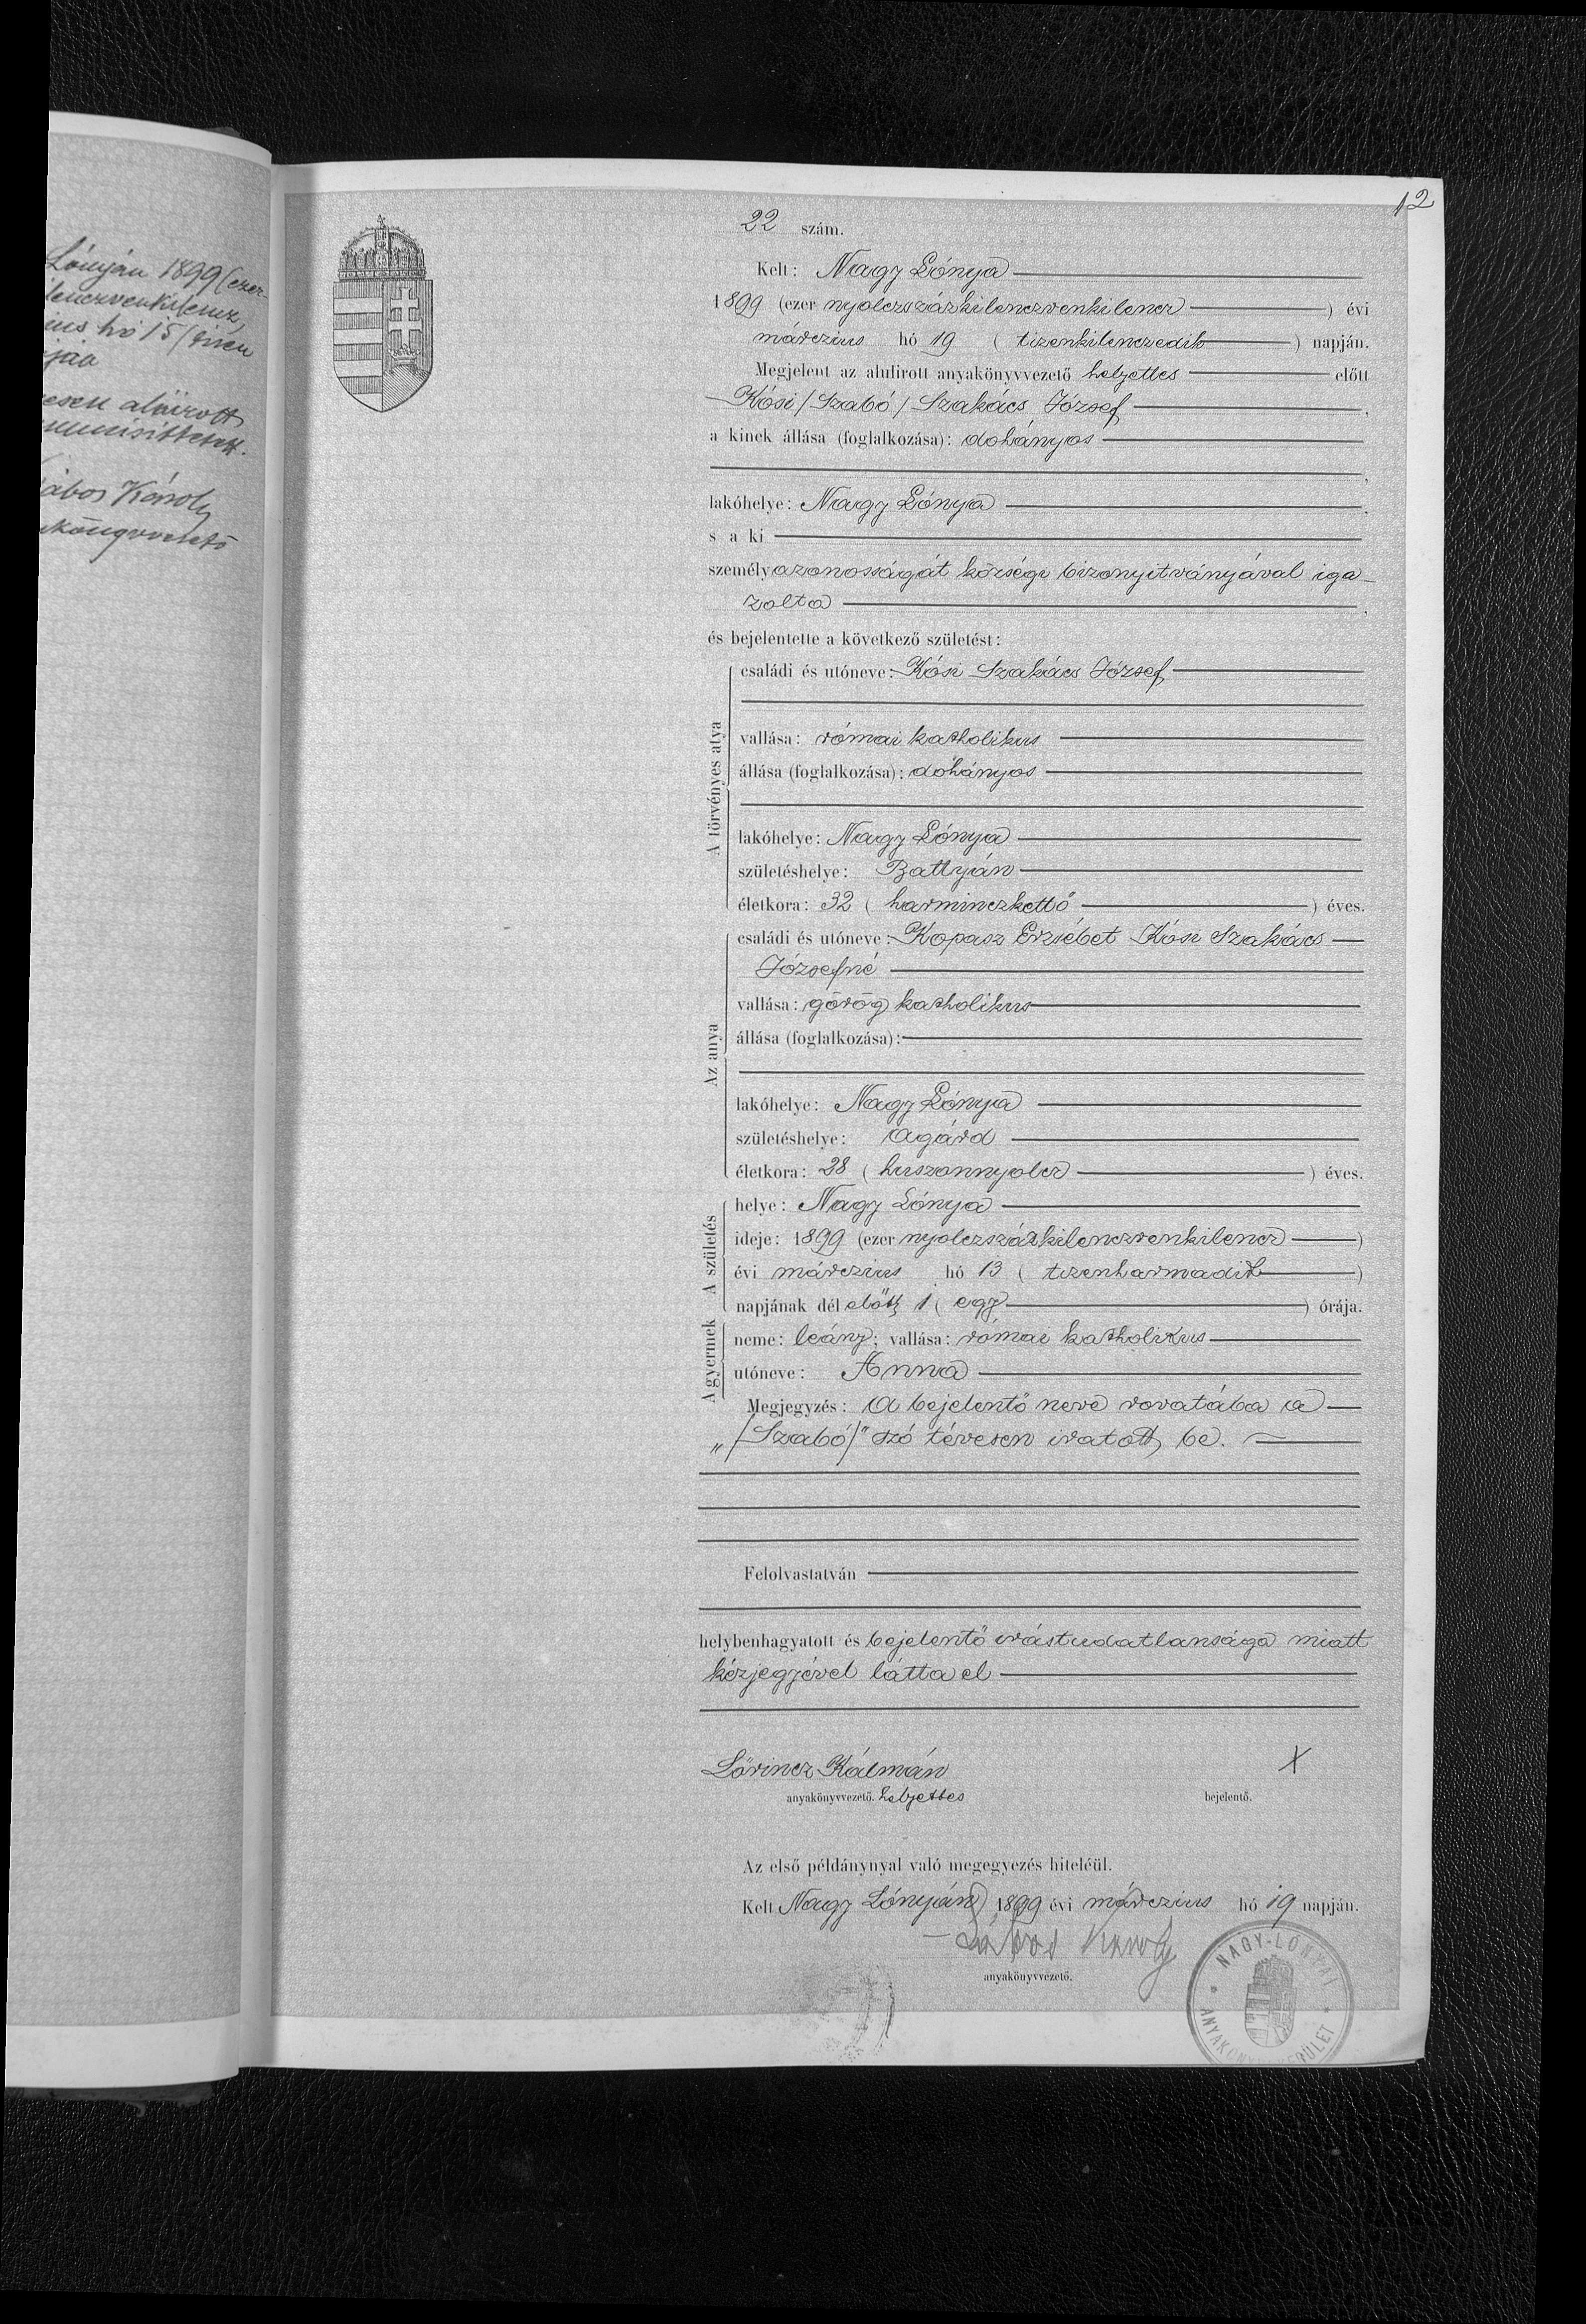 Lónyán 1899 (ezer-
lenczvenkilencz
ius hó 15 (tizen
jaa
esen aláirott
Károly
12
22 szám.
Kelt: Nagy Lónya
1899 (ezer nyolczszázkilenczvenkilencz ) évi
márczius hó 19 ( tizenkilenczedik ) napján.
Megjelent az alulirott anyakönyvvezető helyettes előtt
Kósi /Szabó/ Szakács József ,
a kinek állása (foglalkozása): dohányos
,
lakóhelye: Nagy Lónya ,
s a ki
személyazonosságát községi bizonyitványával iga-
zolta .
és bejelentette a következő születést:
A törvényes atya
családi és utóneve: Kósi Szakács József
vallása: római katholikus
állása (foglalkozása): dohányos
lakóhelye: Nagy Lónya
születéshelye: Battyán
életkora: 32 ( harminczkettő ) éves.
Az anya
családi és utóneve: Kopasz Erzsébet Kósi Szakács
Józsefné
vallása: görög katholikus
állása (foglalkozása):
lakóhelye: Nagy Lónya
születéshelye: Agárd
életkora: 28 ( huszonnyolcz ) éves.
A születés
helye: Nagy Lónya
ideje: 1899 (ezer nyolczszázkilenczvenkilencz )
évi márczius hó 13 ( tizenharmadik )
napjának dél előtt 1 ( egy ) órája.
A gyermek
neme: leány; vallása: római katholikus
utóneve: Anna
Megjegyzés: A bejelentő neve rovatába a
„/Szabó/" szó tévesen iratott be.
Felolvastatván
helybenhagyatott és bejelentő irástudatlansága miatt
kézjegyével látta el
Lőrincz Kálmán X
anyakönyvvezető. helyettes bejelentő.
Az első példánynyal való megegyezés hiteléül.
Kelt Nagy Lónyán 1899 évi márczius hó 19 napján.
Lábos Károly
anyakönyvvezető.
NAGY-LÓNYAI